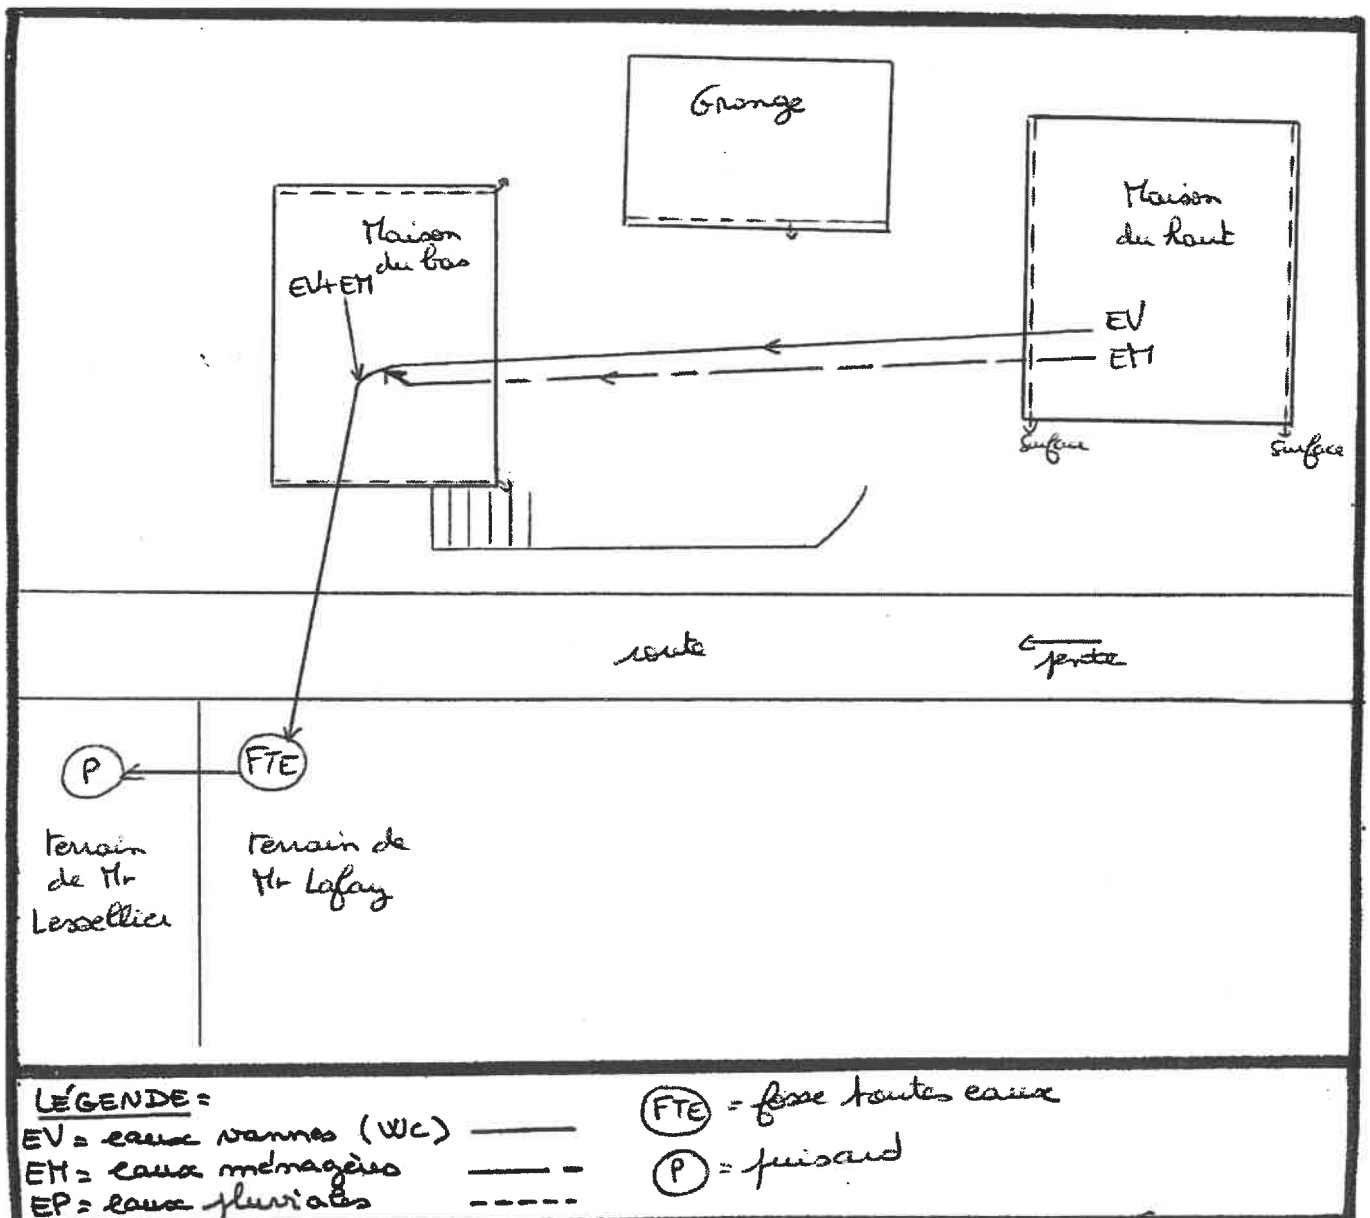 Grange
Maison
du haut
Maison
du bas
EV+EM
EV
EM
surface
surface
route
pente
P
FTE
terrain
de Mr
Lessellier
terrain de
Mr Lafay
LÉGENDE =
EV = eaux vannes (WC)
EM = eaux ménagères
EP = eaux pluviales
FTE = fosse toutes eaux
P = puisard